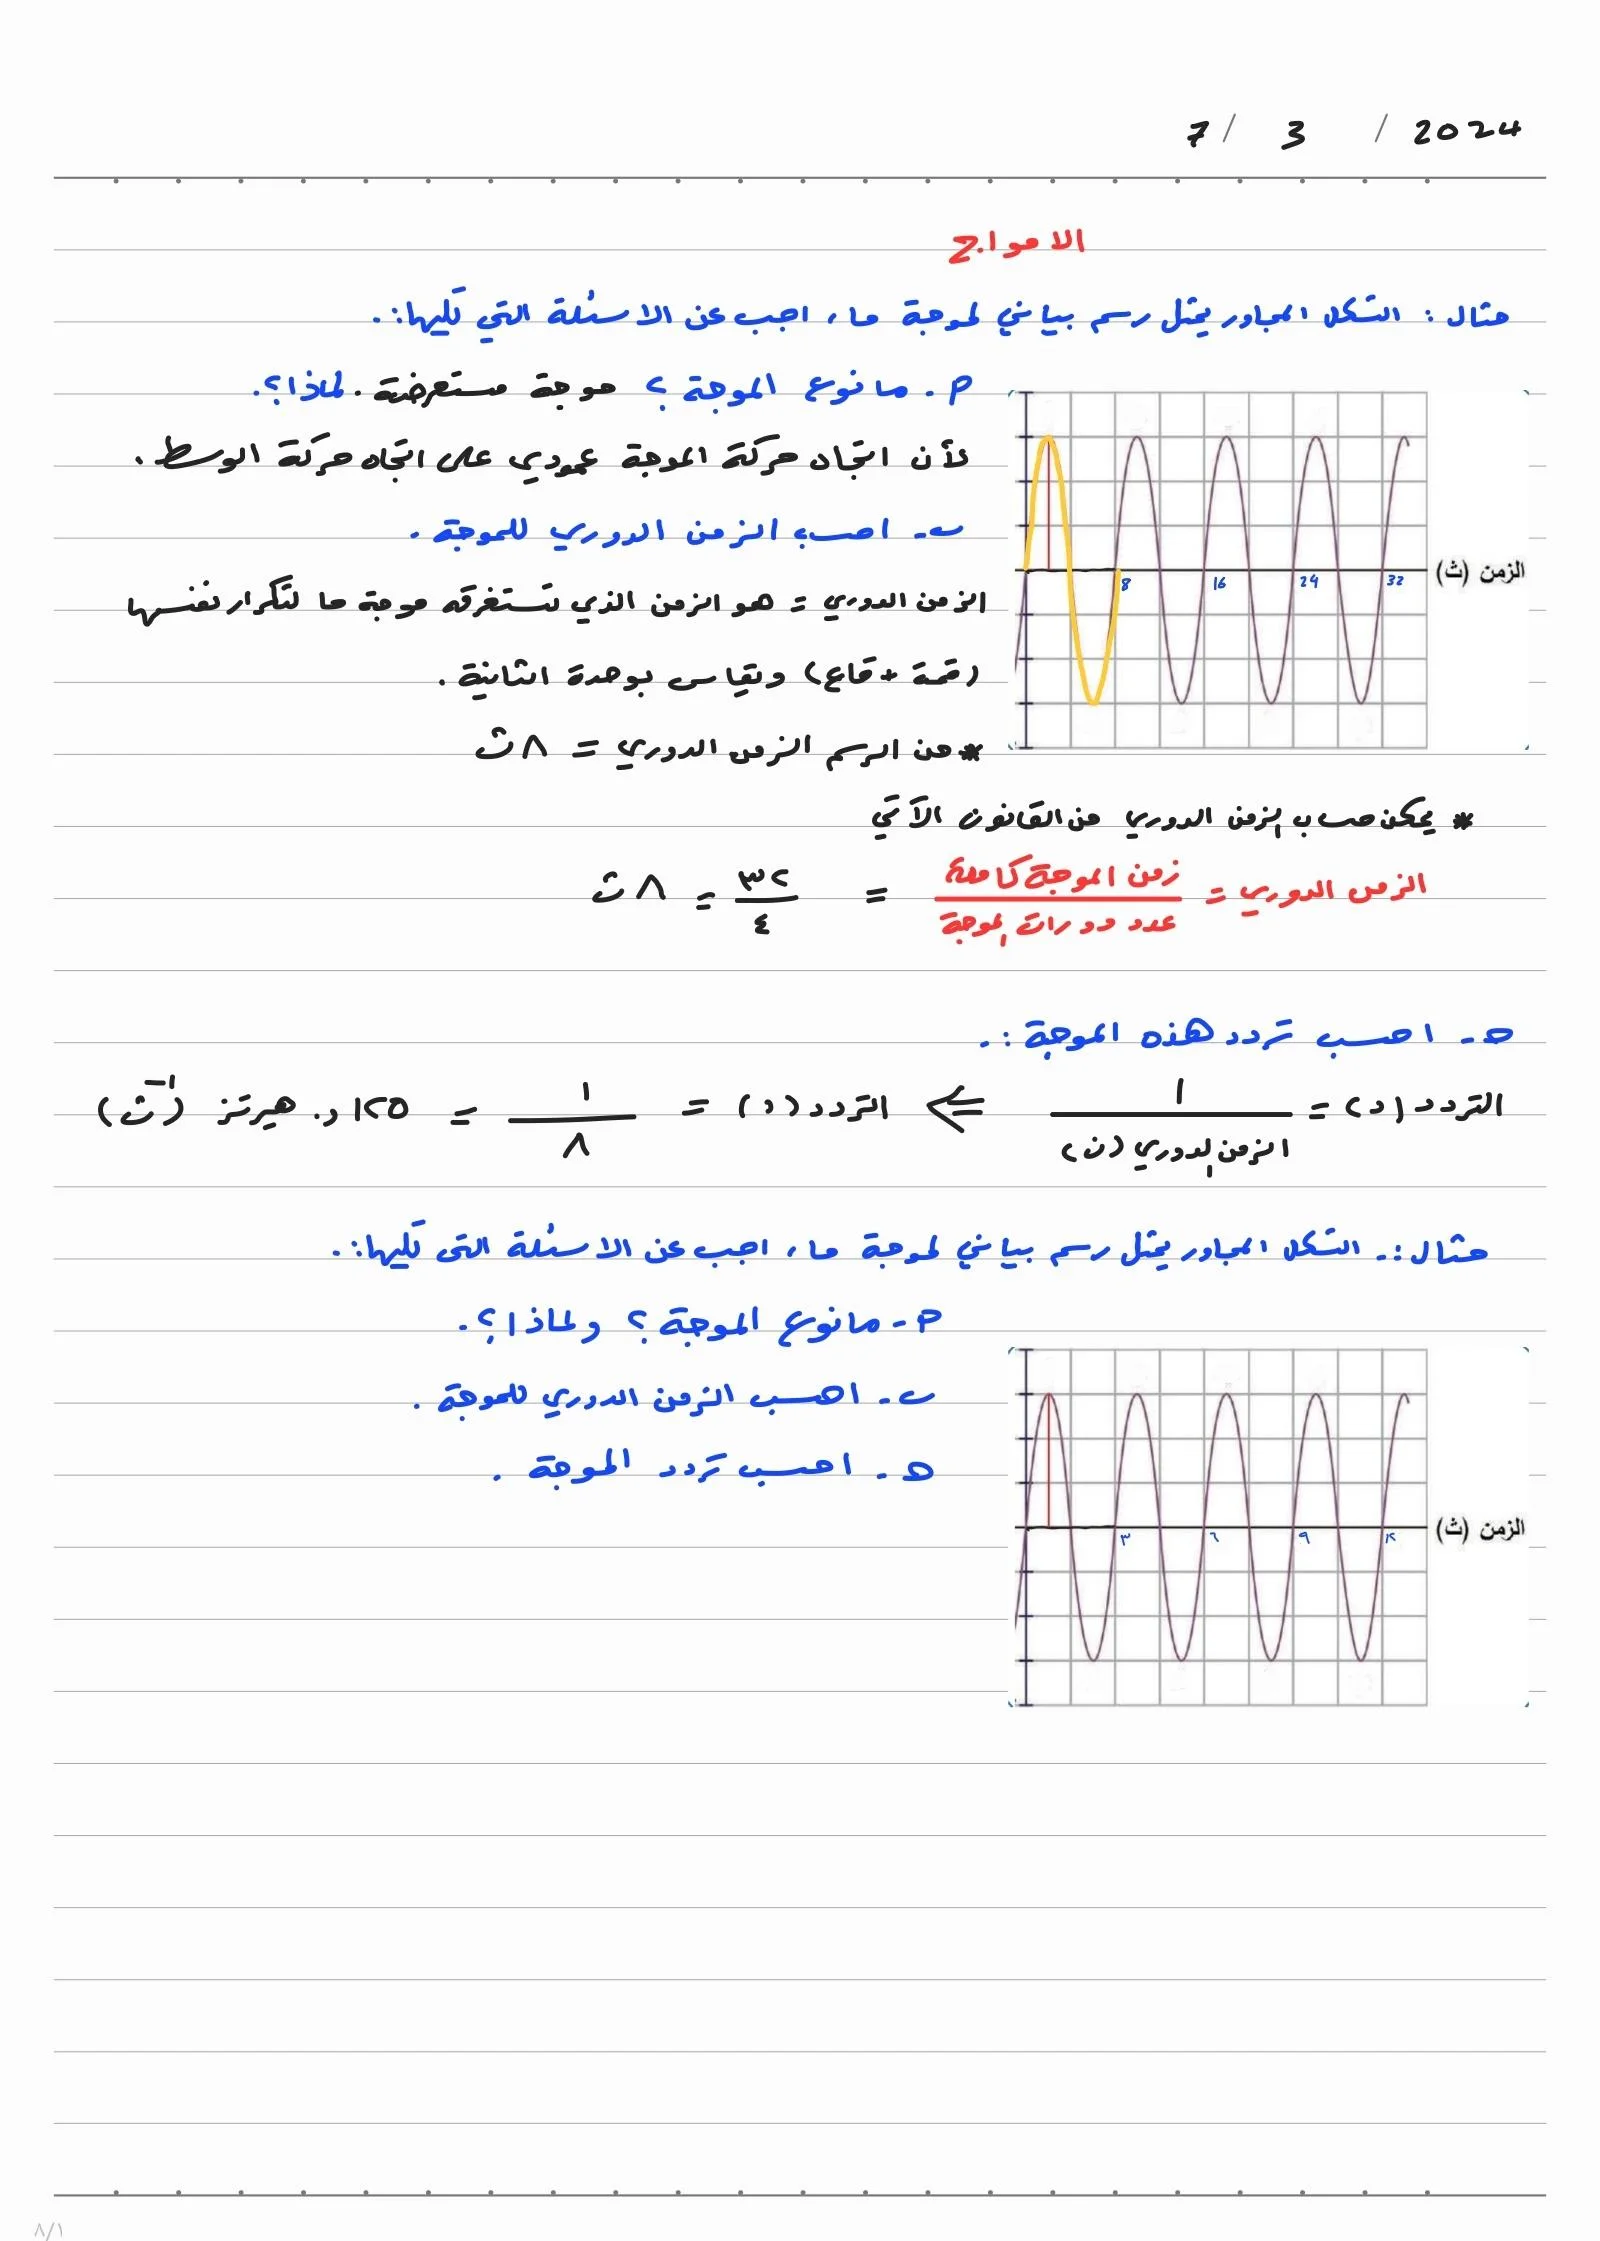 7 / 3 / 2024
الامواج
مثال : الشكل المجاور يمثل رسم بياني لموجة ما ، اجب عن الاسئلة التي تليها :.
م . ما نوع الموجة ؟ موجة مستعرضة . لماذا ؟.
لأن اتجاه حركة الموجة عمودي على اتجاه حركة الوسط .
ب - احسب الزمن الدوري للموجة .
الزمن الدوري = هو الزمن الذي تستغرقه موجة ما لتكرار نفسها
(قمة + قاع) وتقاس بوحدة الثانية .
* من الرسم الزمن الدوري = ٨ ث
8 16 24 32 الزمن (ث)
* يمكن حساب الزمن الدوري من القانون الآتي
الزمن الدوري = زمن الموجة كاملة / عدد دورات الموجة = ٣٢ / ٤ = ٨ ث
ح - احسب تردد هذه الموجة :.
التردد (د) = ١ / الزمن الدوري (ن) => التردد (د) = ١ / ٨ = ١٢٥ر. هيرتز (ث⁻¹)
مثال :. الشكل المجاور يمثل رسم بياني لموجة ما ، اجب عن الاسئلة التي تليها :.
م - ما نوع الموجة ؟ ولماذا ؟.
ب - احسب الزمن الدوري للموجة .
ح - احسب تردد الموجة .
٣ ٦ ٩ ١٢ الزمن (ث)
٨/١